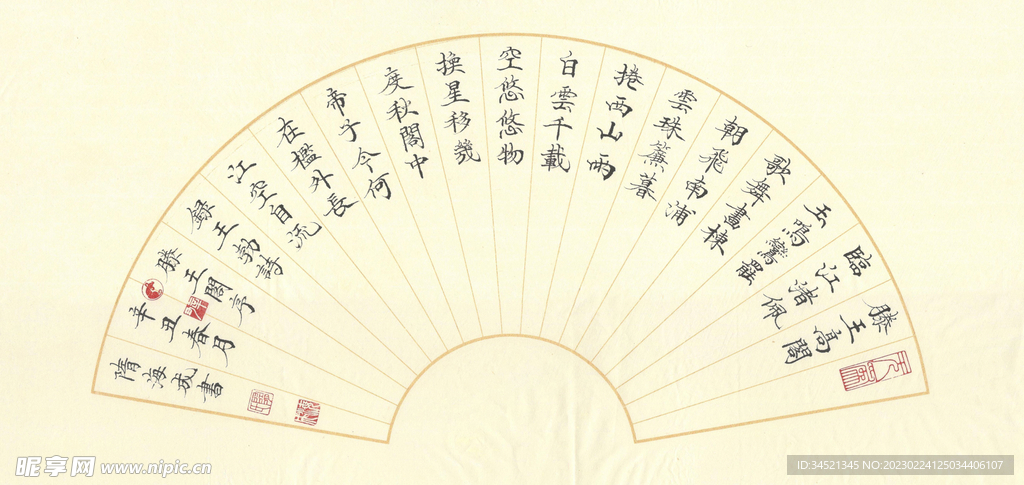 滕王高閣
臨江渚佩
玉鳴鸞罷
歌舞畫棟
朝飛南浦
雲珠簾暮
捲西山雨
白雲千載
空悠悠物
換星移幾
度秋閣中
帝子今何
在檻外長
江空自流
錄王勃詩
滕王閣序
辛丑春月
隋海成書
昵享网 www.nipic.cn
ID:34521345 NO:20230224125034406107